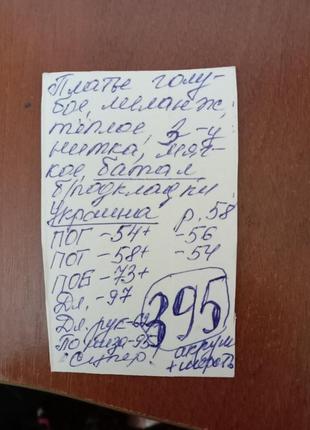 Платье голу-
бое, меланж,
тёплое, 3-у
нитка, мяг-
кое, батал
б/подкладки
Украина р.58
ПОГ -54+ -56
ПОТ -58+ -54
ПОБ -73+
Дл. -97
395
Дл. рук-62
По низа-95
Супер! акрил
+шерсть